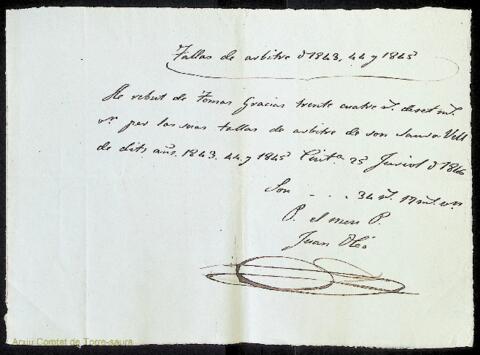 Tallas de arbitre d 1843, 44 y 1845
He rebut de Tomas Gracias trente cuatre r.s diset m.s
v.n per las suas tallas de arbitre de son Saura Vell
de dits añs. 1843, 44 y 1845 Ciut.a 25 Juriol d 1846
Son - - - 34 r.s 17 m.s v.n
P. el meu P.
Juan
Arxiu Comtat de Torre-saura